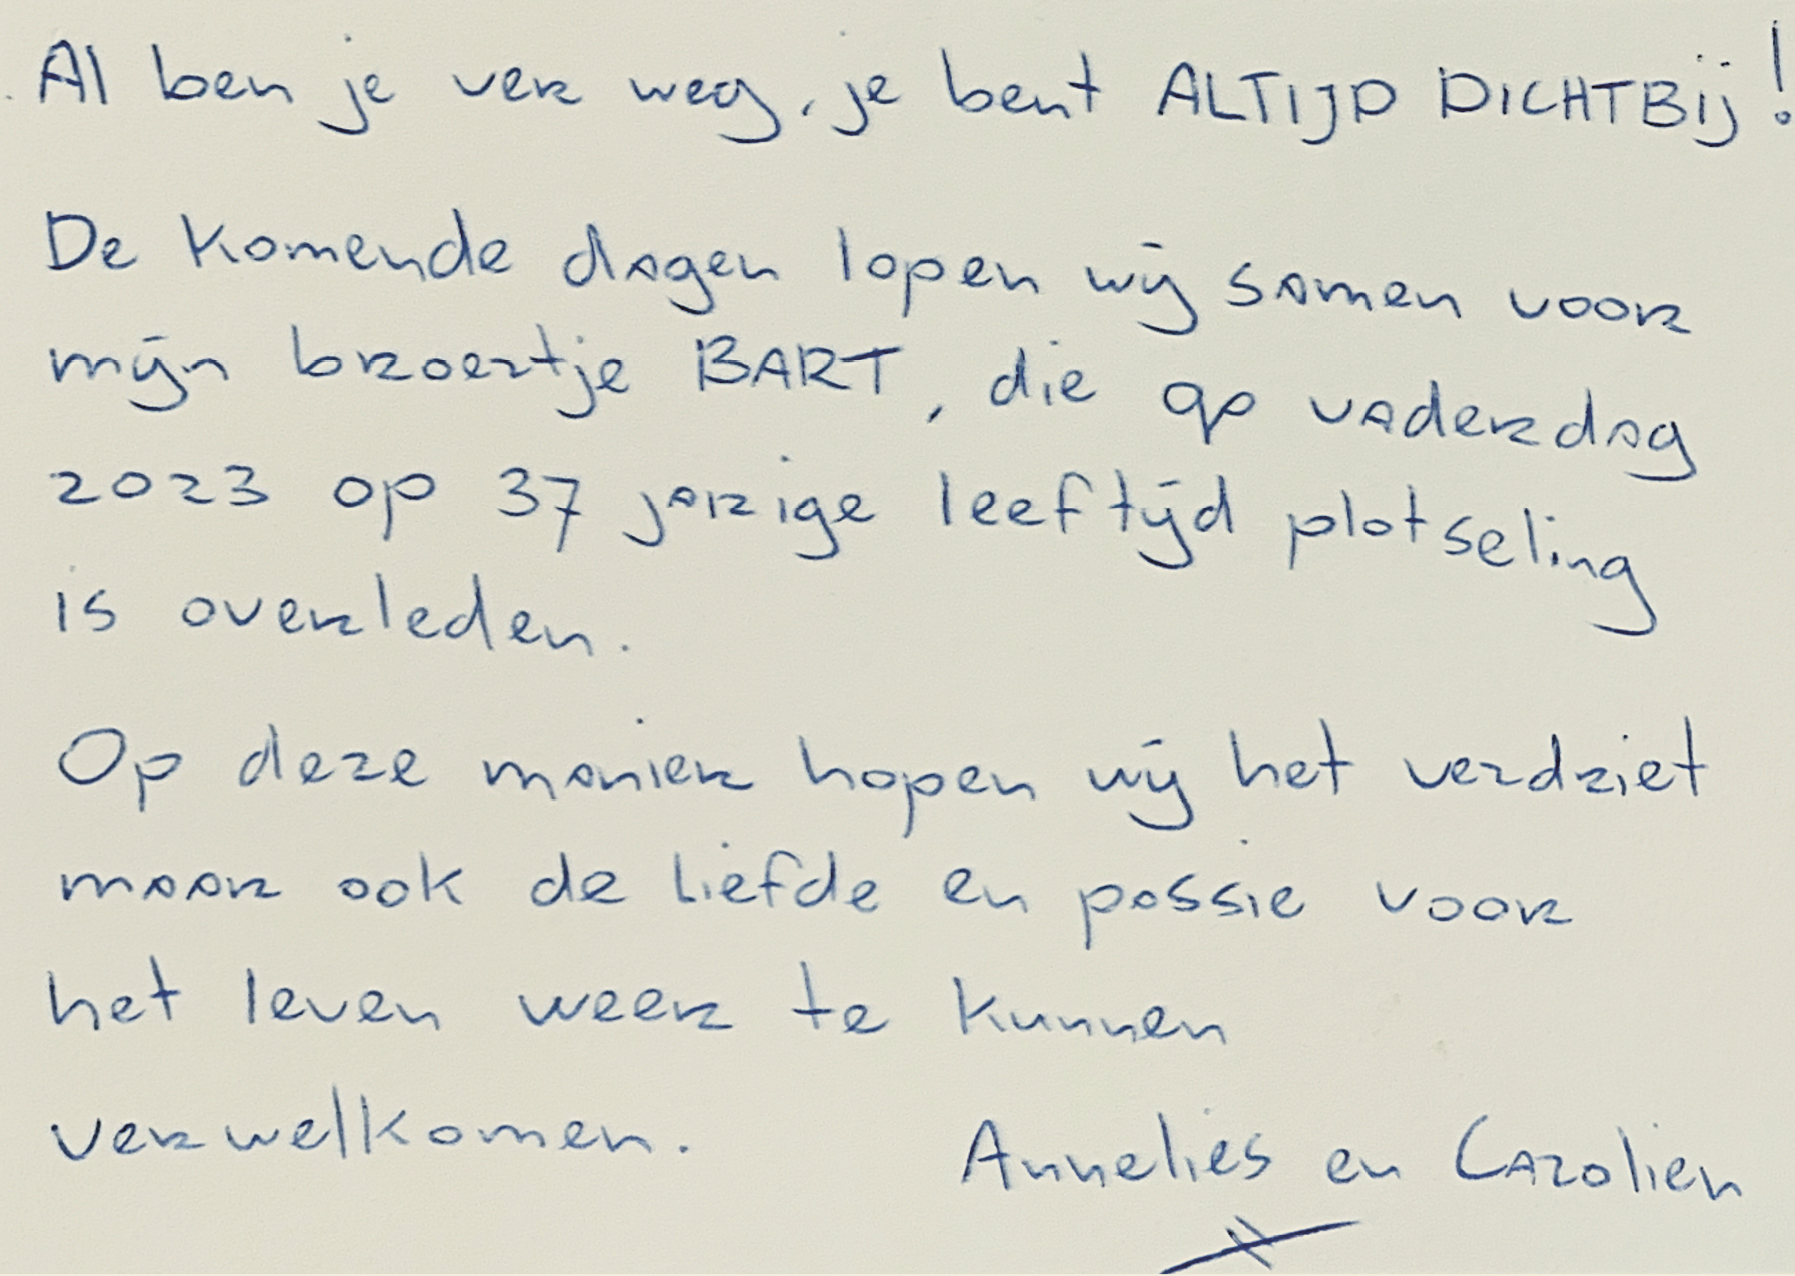 Al ben je ver weg, je bent ALTIJD DICHTBIJ!
De komende dagen lopen wij samen voor
mijn broertje BART, die op vaderdag
2023 op 37 jarige leeftijd plotseling
is overleden.
Op deze manier hopen wij het verdriet
maar ook de liefde en passie voor
het leven weer te kunnen
verwelkomen.
Annelies en Carolien